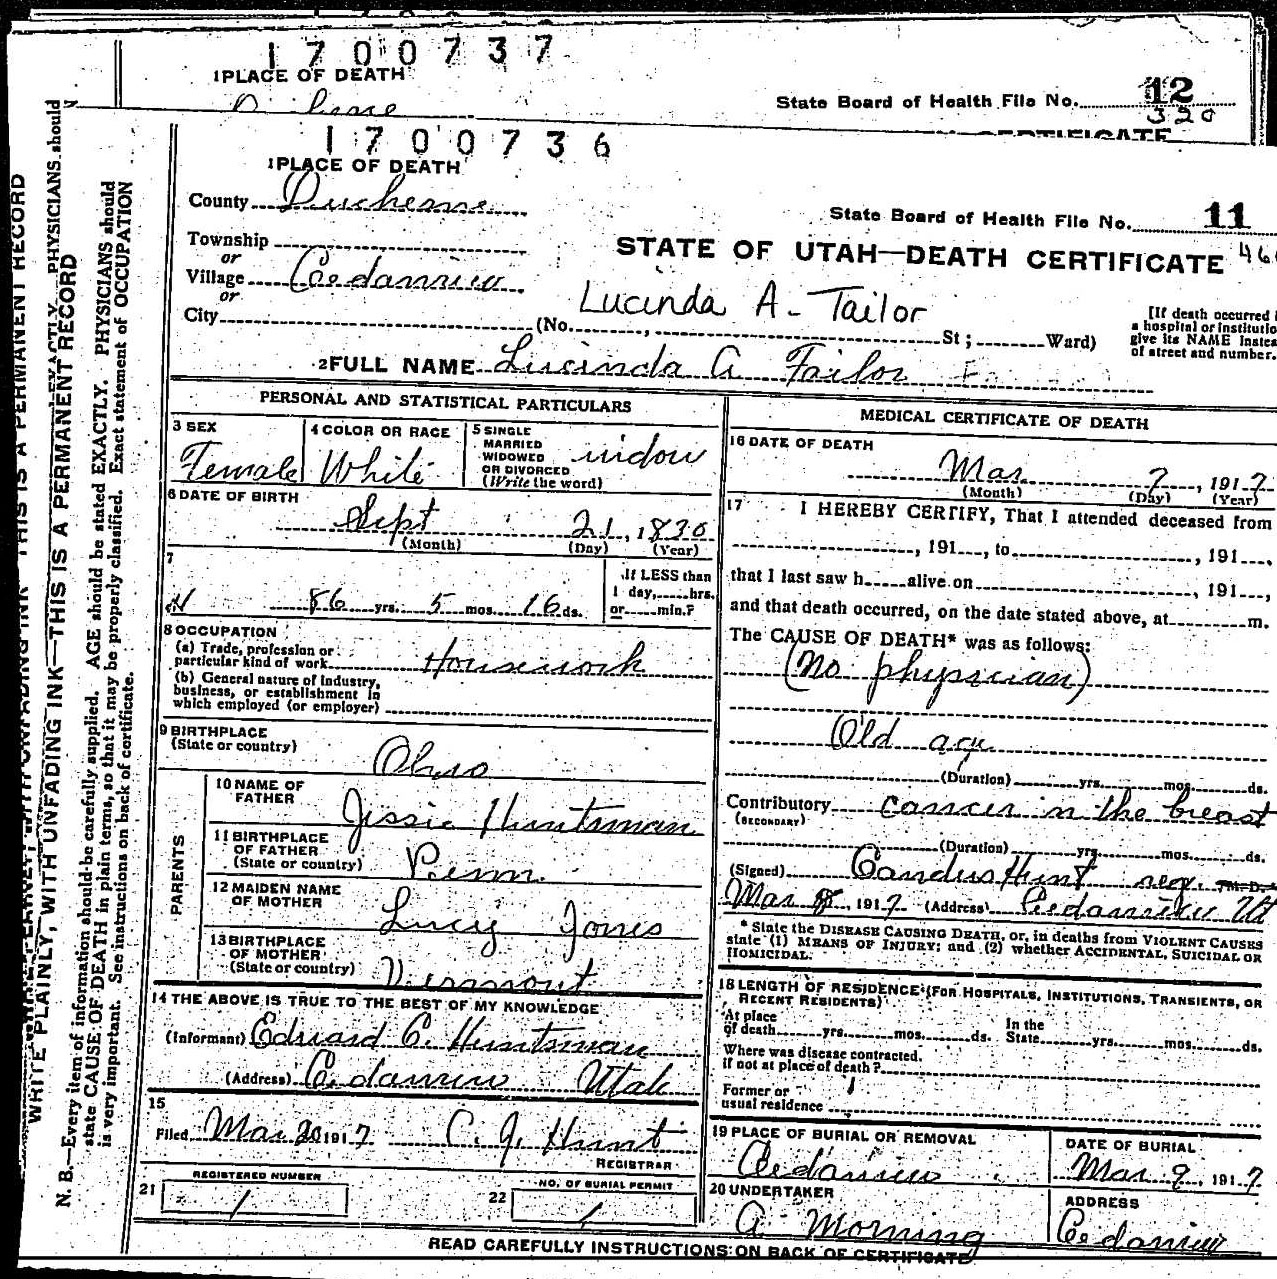 1700737
1 PLACE OF DEATH
State Board of Health File No. 12
320
CERTIFICATE
1700736
1 PLACE OF DEATH
County Duchesne
State Board of Health File No. 11
Township
or
STATE OF UTAH—DEATH CERTIFICATE
Village Cedarview
or
Lucinda A. Tailor
City (No. , St; Ward)
[If death occurred i
a hospital or institutio
give its NAME instea
of street and number.
2 FULL NAME Lucinda A Tailor
PERSONAL AND STATISTICAL PARTICULARS
3 SEX
Female
4 COLOR OR RACE
White
5 SINGLE
MARRIED
WIDOWED
OR DIVORCED
(Write the word)
widow
6 DATE OF BIRTH
Sept 21, 1830
(Month) (Day) (Year)
7
86 yrs. 5 mos. 16 ds.
If LESS than
1 day, hrs.
or min.?
8 OCCUPATION
(a) Trade, profession or
particular kind of work Housework
(b) General nature of industry,
business, or establishment in
which employed (or employer)
9 BIRTHPLACE
(State or country)
Ohio
PARENTS
10 NAME OF
FATHER
Jessie Huntsman
11 BIRTHPLACE
OF FATHER
(State or country)
Penn.
12 MAIDEN NAME
OF MOTHER
Lucy Jones
13 BIRTHPLACE
OF MOTHER
(State or country)
Vermount
14 THE ABOVE IS TRUE TO THE BEST OF MY KNOWLEDGE
(Informant) Edward C. Huntsman
(Address) Cedarview Utah
15
Filed Mar 20 1917 C. J. Hunt
REGISTRAR
REGISTERED NUMBER
21 1
NO. OF BURIAL PERMIT
22 1
MEDICAL CERTIFICATE OF DEATH
16 DATE OF DEATH
Mar 7, 1917
(Month) (Day) (Year)
17 I HEREBY CERTIFY, That I attended deceased from
, 191 , to , 191 ,
that I last saw h alive on , 191 ,
and that death occurred, on the date stated above, at m.
The CAUSE OF DEATH* was as follows:
(No physician)
Old age
(Duration) yrs. mos. ds.
Contributory cancer in the breast
(SECONDARY)
(Duration) yrs. mos. ds.
(Signed) Hunt reg. M. D.
Mar 8, 1917 (Address) Cedarview Ut
* State the DISEASE CAUSING DEATH, or, in deaths from VIOLENT CAUSES
state (1) MEANS OF INJURY; and (2) whether ACCIDENTAL, SUICIDAL OR
HOMICIDAL.
18 LENGTH OF RESIDENCE (FOR HOSPITALS, INSTITUTIONS, TRANSIENTS, OR
RECENT RESIDENTS)
At place
of death yrs. mos. ds.
In the
State yrs. mos. ds.
Where was disease contracted.
if not at place of death?
Former or
usual residence
19 PLACE OF BURIAL OR REMOVAL
Cedarview
DATE OF BURIAL
Mar 9, 1917
20 UNDERTAKER
A. Morning
ADDRESS
Cedarview
READ CAREFULLY INSTRUCTIONS ON BACK OF CERTIFICATE
WRITE PLAINLY, WITH UNFADING INK—THIS IS A PERMANENT RECORD
N. B.—Every item of information should be carefully supplied. AGE should be stated EXACTLY. PHYSICIANS should
state CAUSE OF DEATH in plain terms, so that it may be properly classified. Exact statement of OCCUPATION
is very important. See instructions on back of certificate.